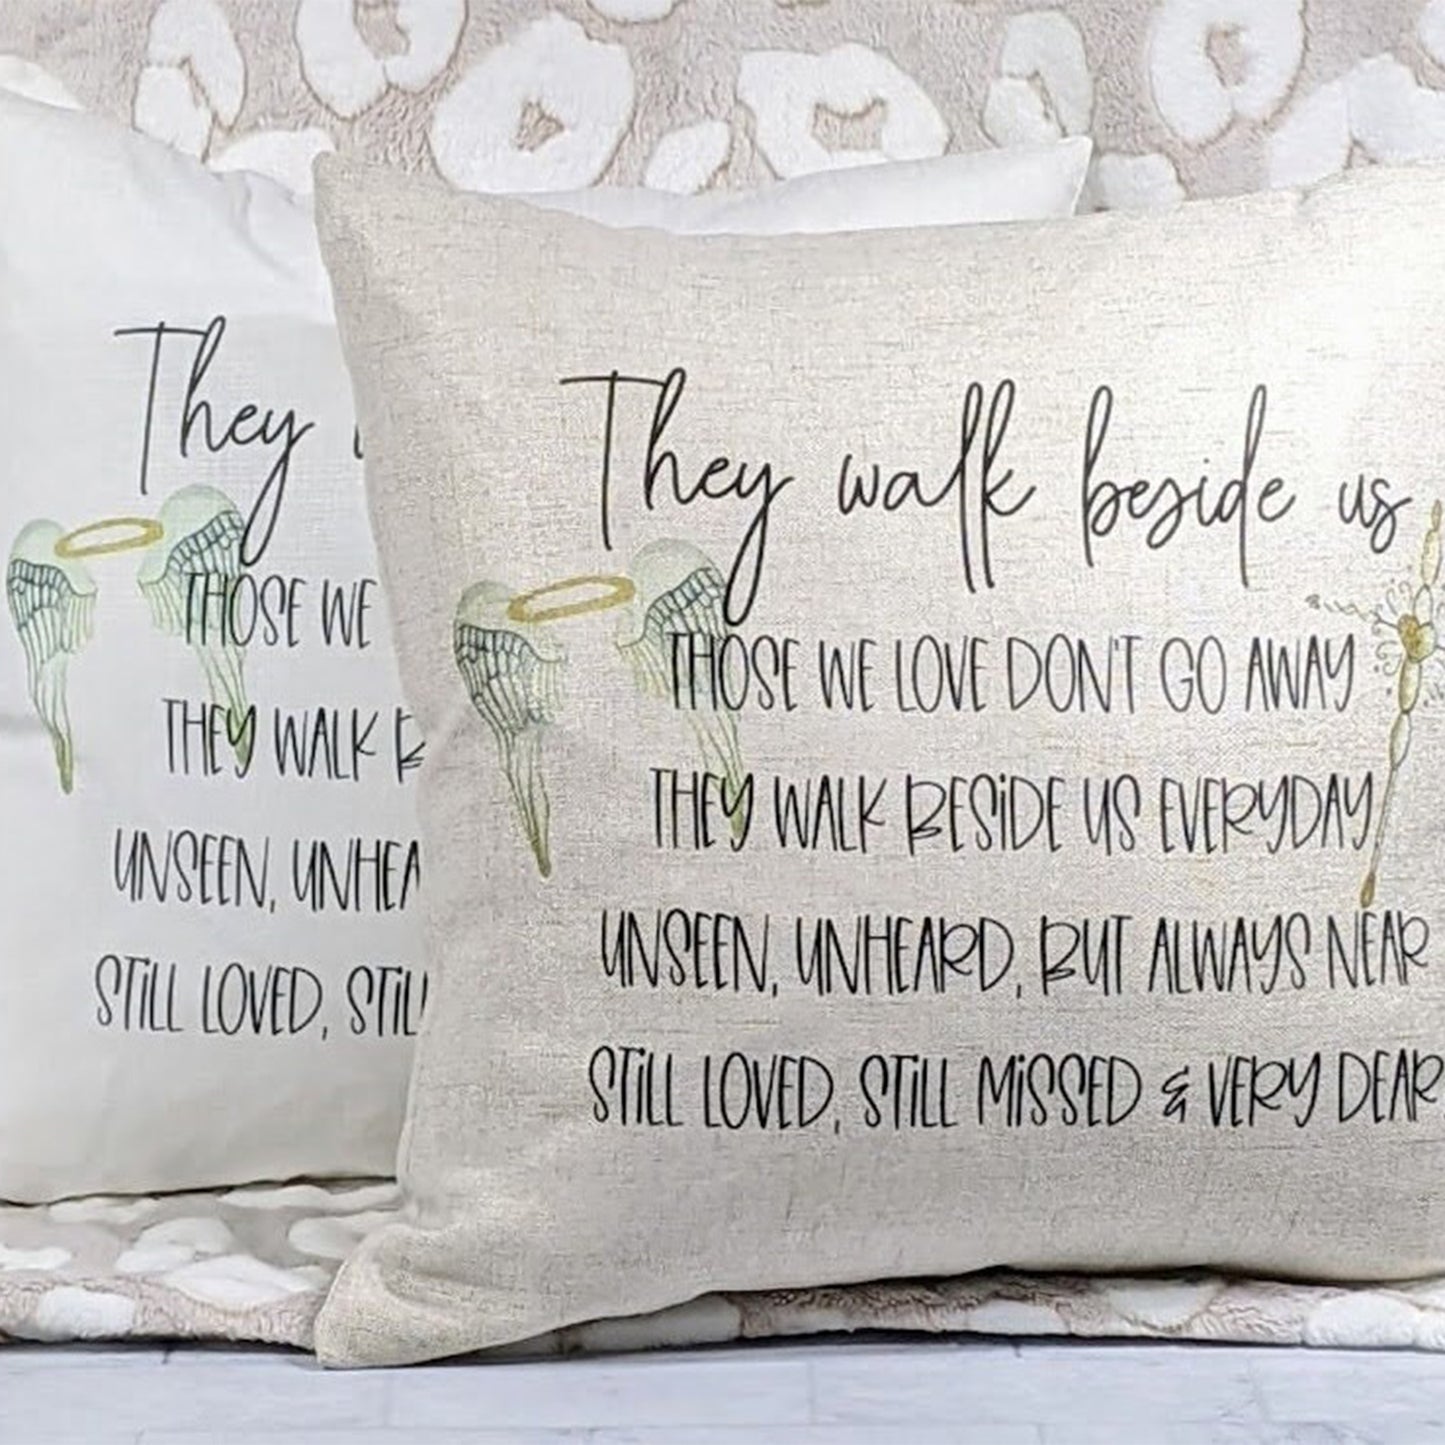 They
THOSE WE
THEY WALK
UNSEEN, UNHEA
STILL LOVED, STIL
They walk beside us
THOSE WE LOVE DON'T GO AWAY
THEY WALK BESIDE US EVERYDAY,
UNSEEN, UNHEARD, BUT ALWAYS NEAR
STILL LOVED, STILL MISSED & VERY DEAR